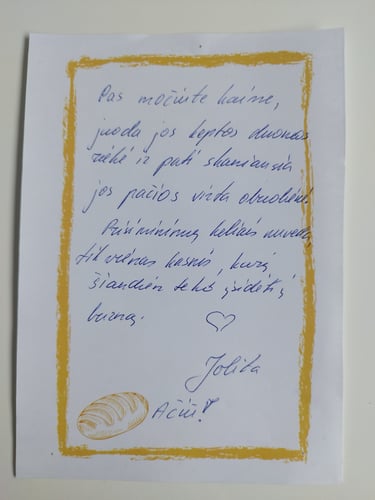 Pas močiutę kaime,
juoda jos keptos duonos
riekė ir pati skaniausia
jos pačios virta obuolienė.
Prisiminimų keliais nuvedė,
tik vienas kąsnis, kurį
šiandien teko įsidėti į
burną. ♡
Jolita
Ačiū!